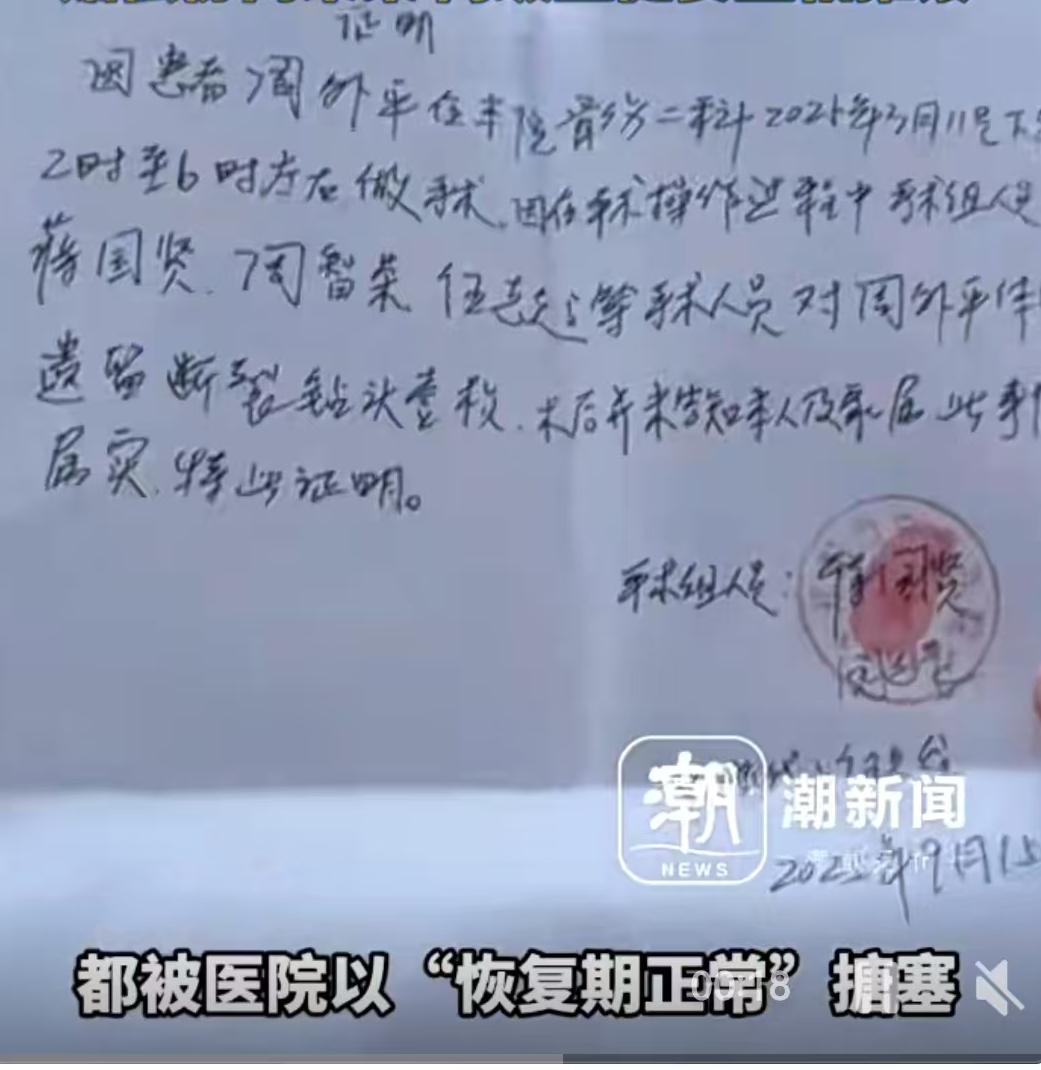 证明
因患者周外平在本院骨伤二科2025年3月11号下
2时至6时左右做手术.因在手术操作过程中手术组人员
蒋国贤.周智荣.伍 等手术人员对周外平体
遗留断裂钻头壹枚.术后并未告知本人及家属此事情
属实.特此证明。
手术组人员:蒋国贤
潮
NEWS
潮新闻
2025年9月15
都被医院以“恢复期正常”搪塞